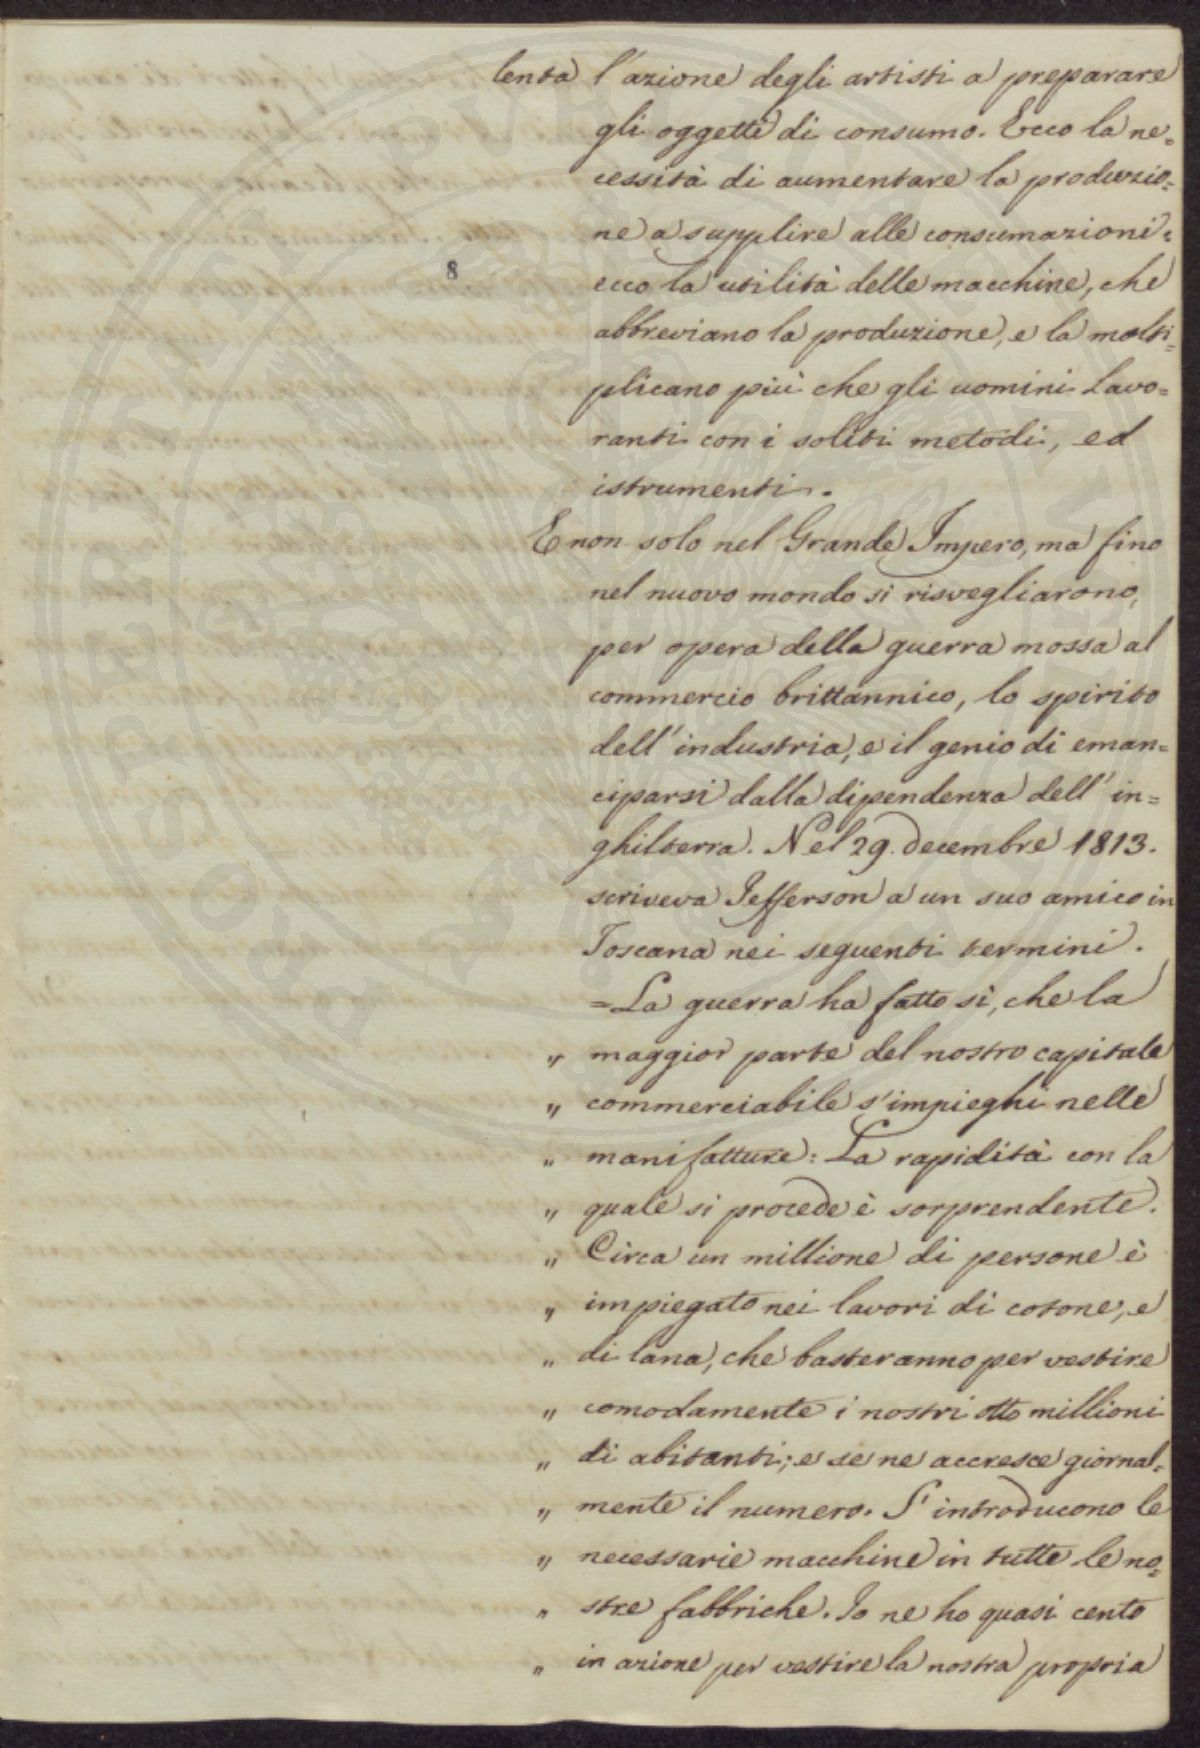 lenta l'azione degli artisti a preparare
gli oggetti di consumo. Ecco la ne=
cessità di aumentare la produzio=
ne a supplire alle consumazioni:
8
ecco la utilità delle macchine, che
abbreviano la produzione, e la molti=
plicano più che gli uomini lavo=
ranti con i soliti metodi, ed
istrumenti.
E non solo nel Grande Impero, ma fino
nel nuovo mondo si risvegliarono,
per opera della guerra mossa al
commercio brittannico, lo spirito
dell'industria, e il genio di eman=
ciparsi dalla dipendenza dell'in=
ghilterra. Nel 29. decembre 1813.
scriveva Jefferson a un suo amico in
Toscana nei seguenti termini.
=La guerra ha fatto sì, che la
„ maggior parte del nostro capitale
„ commerciabile s'impieghi nelle
„ manifatture: La rapidità con la
„ quale si procede è sorprendente.
„ Circa un millione di persone è
„ impiegato nei lavori di cotone, e
„ di lana, che basteranno per vestire
„ comodamente i nostri otto millioni
„ di abitanti; e se ne accresce giornal=
„ mente il numero. S'introducono le
„ necessarie macchine in tutte le no=
„ stre fabbriche. Io ne ho quasi cento
„ in azione per vestire la nostra propria